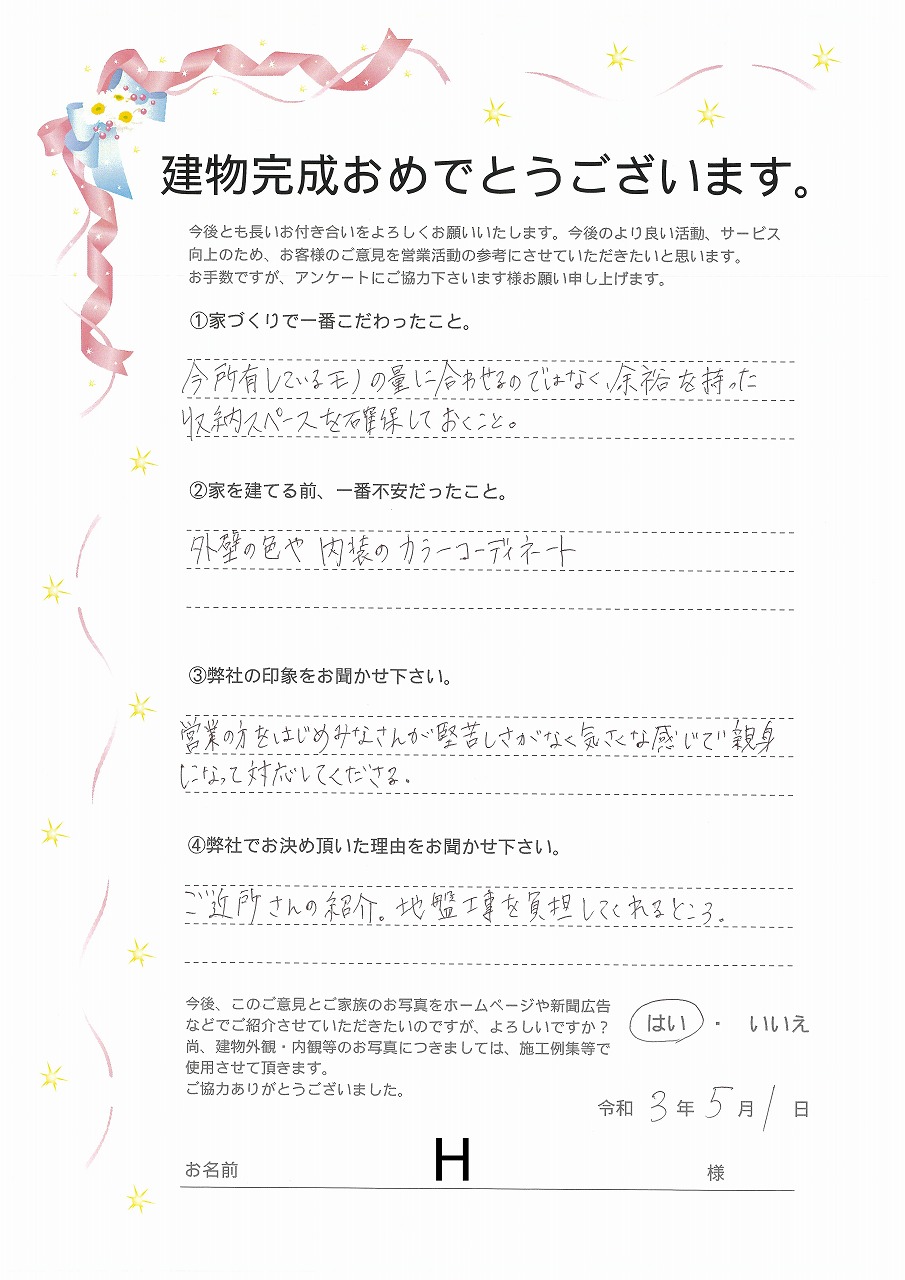 建物完成おめでとうございます。
今後とも長いお付き合いをよろしくお願いいたします。今後のより良い活動、サービス
向上のため、お客様のご意見を営業活動の参考にさせていただきたいと思います。
お手数ですが、アンケートにご協力下さいます様お願い申し上げます。
①家づくりで一番こだわったこと。
今所有しているモノの量に合わせるのではなく、余裕を持った
収納スペースを確保しておくこと。
②家を建てる前、一番不安だったこと。
外壁の色や内装のカラーコーディネート
③弊社の印象をお聞かせ下さい。
営業の方をはじめみなさんが堅苦しさがなく気さくな感じで親身
になって対応してくださる。
④弊社でお決め頂いた理由をお聞かせ下さい。
ご近所さんの紹介。地盤工事を負担してくれるところ。
今後、このご意見とご家族のお写真をホームページや新聞広告
などでご紹介させていただきたいのですが、よろしいですか？ はい ・ いいえ
尚、建物外観・内観等のお写真につきましては、施工例集等で
使用させて頂きます。
ご協力ありがとうございました。
令和 3 年 5 月 1 日
お名前 H 様